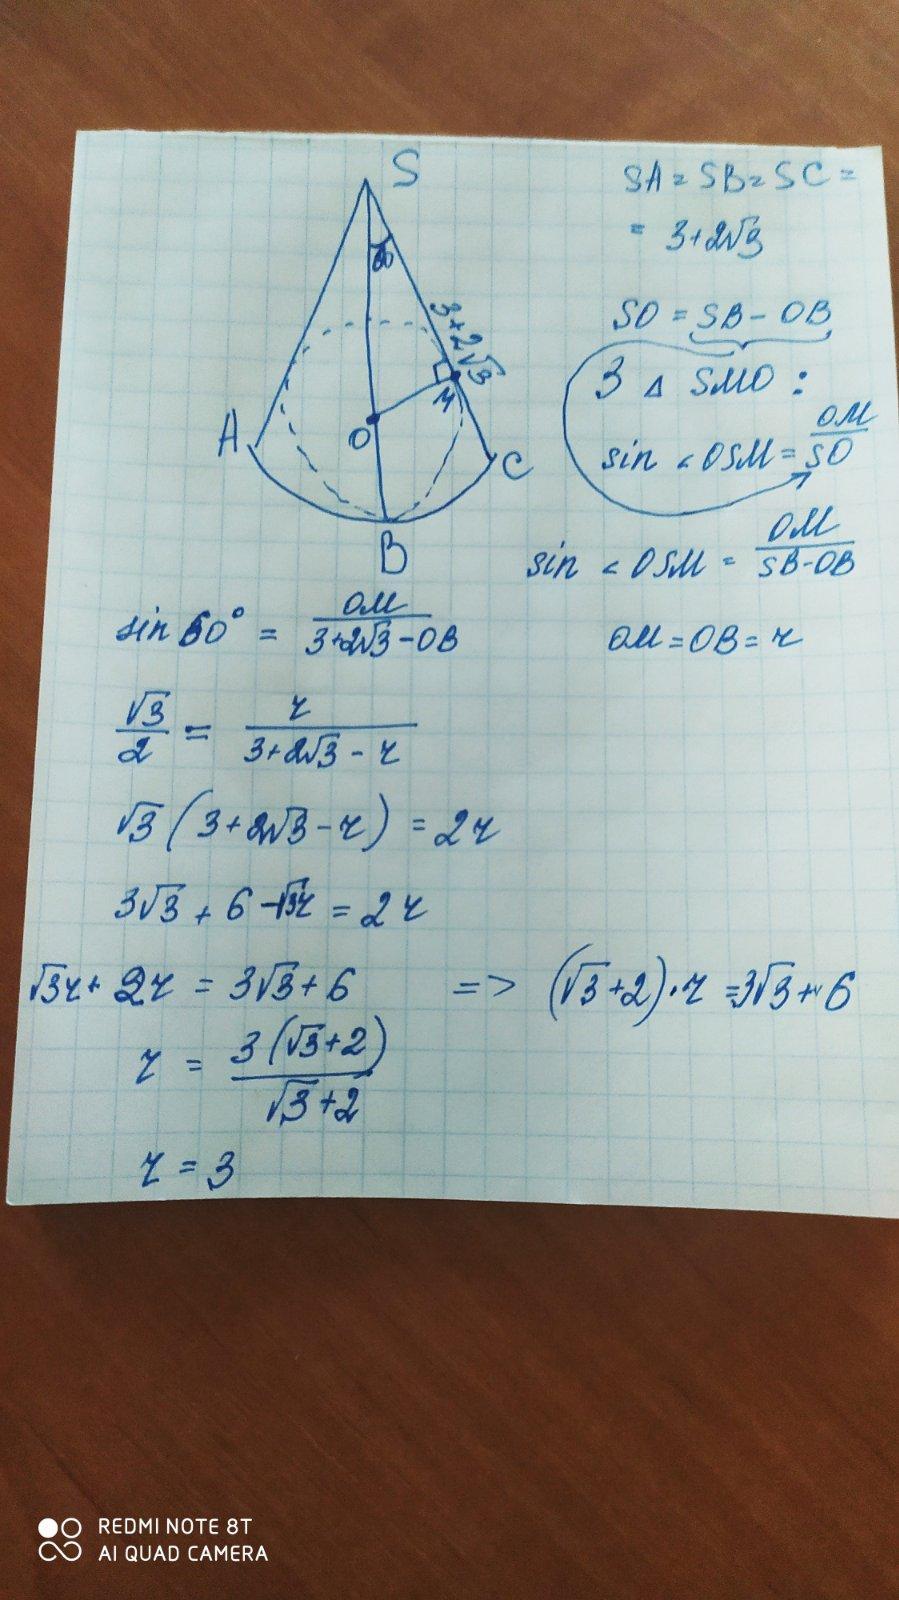 S
SA = SB = SC =
= 3+2√3
3+2√3
SO = SB - OB
З Δ SMO :
sin ∠OSM = OM/SO
A
O
M
C
B
sin ∠OSM = OM/(SB-OB)
sin 60° = OM/(3+2√3-OB)
OM = OB = r
√3/2 = r/(3+2√3-r)
√3 (3+2√3-r) = 2r
3√3 + 6 -√3r = 2r
√3r + 2r = 3√3+6 => (√3+2)·r = 3√3+6
r = 3(√3+2)/(√3+2)
r = 3
REDMI NOTE 8T
AI QUAD CAMERA